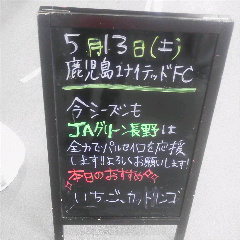 5月13日(土)
鹿児島ユナイテッドFC
今シーズンも
JAグリーン長野は
全力でパルセイロを応援
します!!よろしくお願いします!
本日のおすすめ
いちご、カットリンゴ